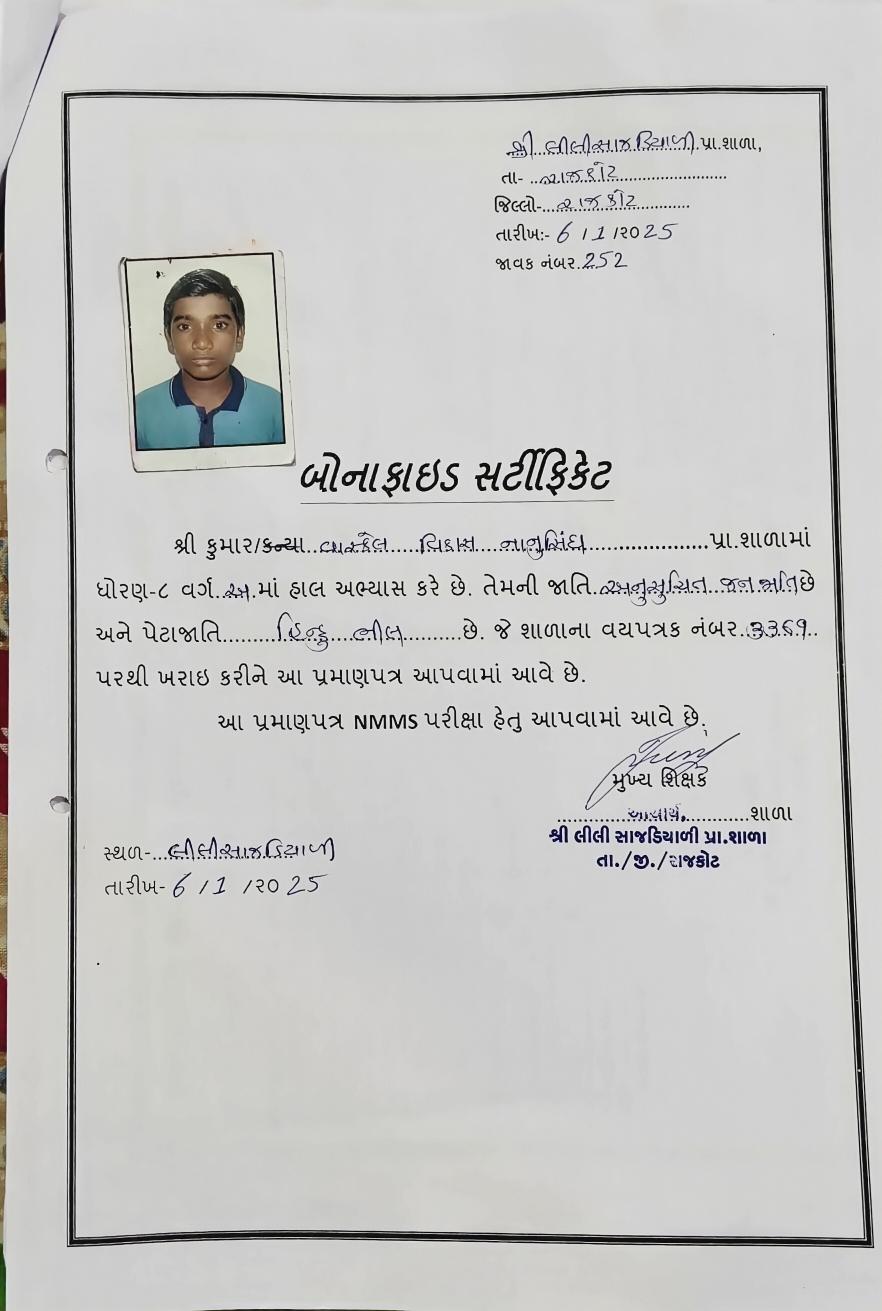 શ્રી લીલીસાજડિયાળી પ્રા.શાળા,
તા- રાજકોટ
જિલ્લો- રાજકોટ
તારીખ:- 6 / 1 /૨૦25
જાવક નંબર.252
બોનાફાઇડ સર્ટીફિકેટ
શ્રી કુમાર/કન્યા વાસ્કેલ વિકાસ નાનુસિંઘ પ્રા.શાળામાં
ધોરણ-૮ વર્ગ અ માં હાલ અભ્યાસ કરે છે. તેમની જાતિ અનુસુચિત જન જાતિ છે
અને પેટાજાતિ હિન્દુ ભીલ છે. જે શાળાના વયપત્રક નંબર 3369
પરથી ખરાઇ કરીને આ પ્રમાણપત્ર આપવામાં આવે છે.
આ પ્રમાણપત્ર NMMS પરીક્ષા હેતુ આપવામાં આવે છે.
મુખ્ય શિક્ષક
આચાર્ય શાળા
શ્રી લીલી સાજડિયાળી પ્રા.શાળા
તા./જી./રાજકોટ
સ્થળ- લીલીસાજડિયાળી
તારીખ- 6 / 1 /૨૦25